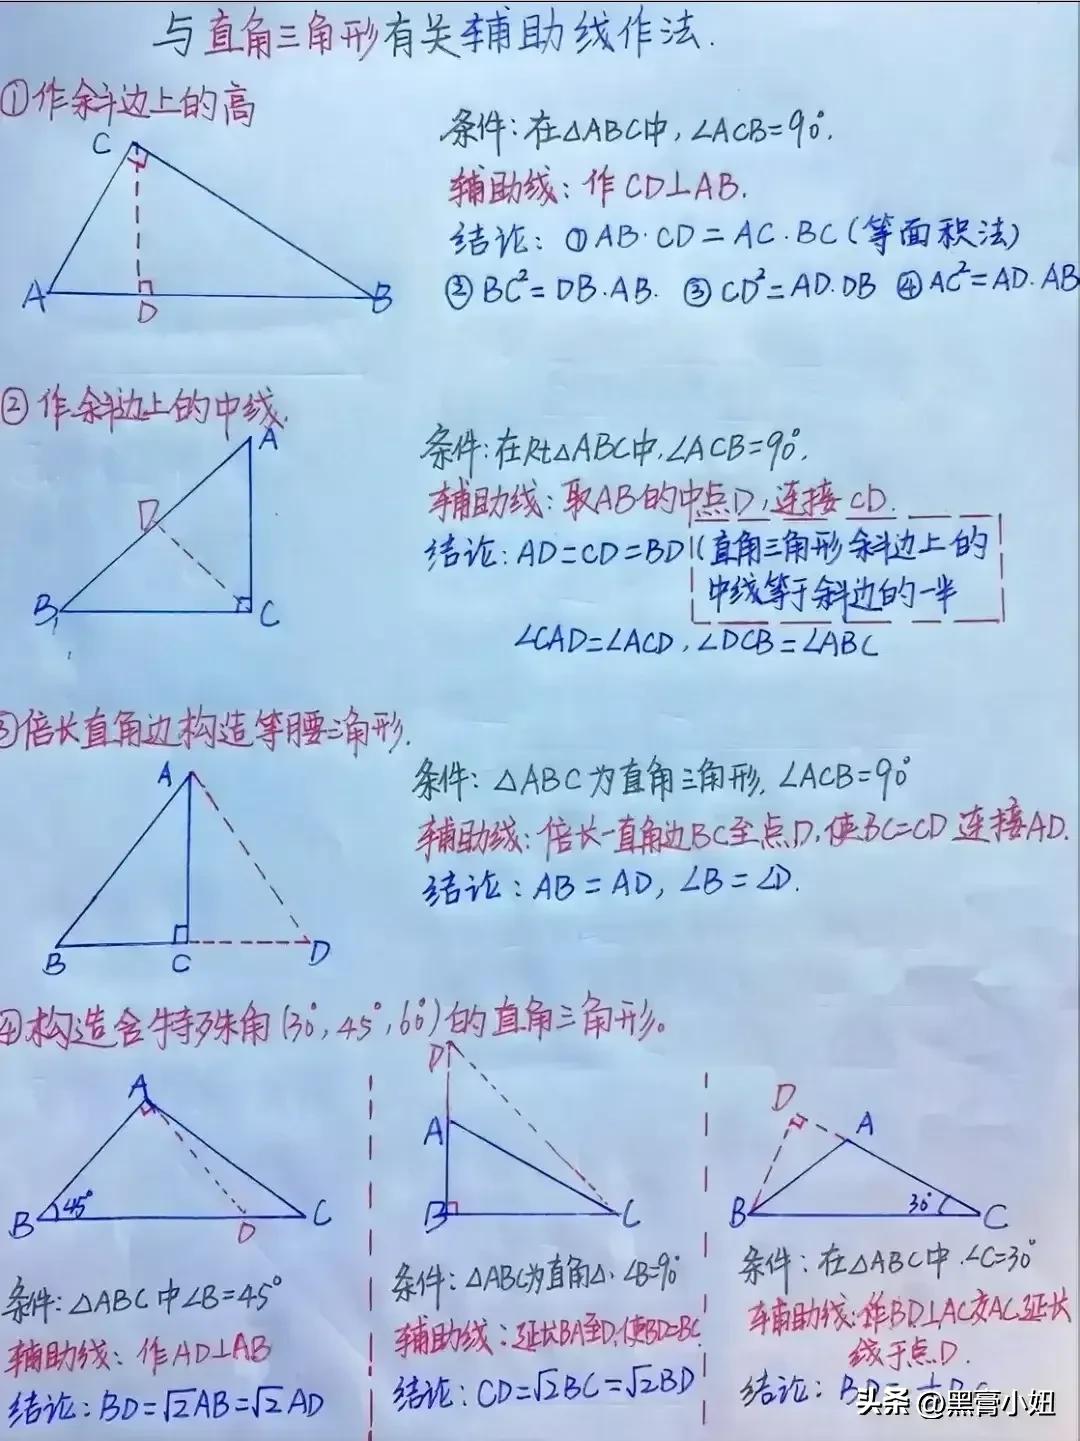 与直角三角形有关辅助线作法.
①作斜边上的高
C
A
D
B
条件:在△ABC中,∠ACB=90°.
辅助线:作CD⊥AB.
结论:①AB·CD=AC·BC(等面积法)
②BC²=DB·AB. ③CD²=AD·DB ④AC²=AD·AB
②作斜边上的中线.
A
D
B
C
条件:在Rt△ABC中,∠ACB=90°.
辅助线:取AB的中点D,连接CD.
结论:AD=CD=BD(直角三角形斜边上的
中线等于斜边的一半
∠CAD=∠ACD,∠DCB=∠ABC
③倍长直角边构造等腰三角形.
A
B
C
D
条件:△ABC为直角三角形,∠ACB=90°
辅助线:倍长一直角边BC至点D,使BC=CD连接AD.
结论:AB=AD,∠B=∠D.
④构造含特殊角(30°,45°,60°)的直角三角形。
A
B
45°
D
C
条件:△ABC中∠B=45°
辅助线:作AD⊥AB
结论:BD=√2AB=√2AD
D
A
B
C
条件:△ABC为直角△.∠B=90°
辅助线:延长BA至D,使BD=BC
结论:CD=√2BC=√2BD
D
A
B
30°
C
条件:在△ABC中.∠C=30°
辅助线:作BD⊥AC交AC延长
线于点D.
结论:BD=
头条 @黑膏小妞